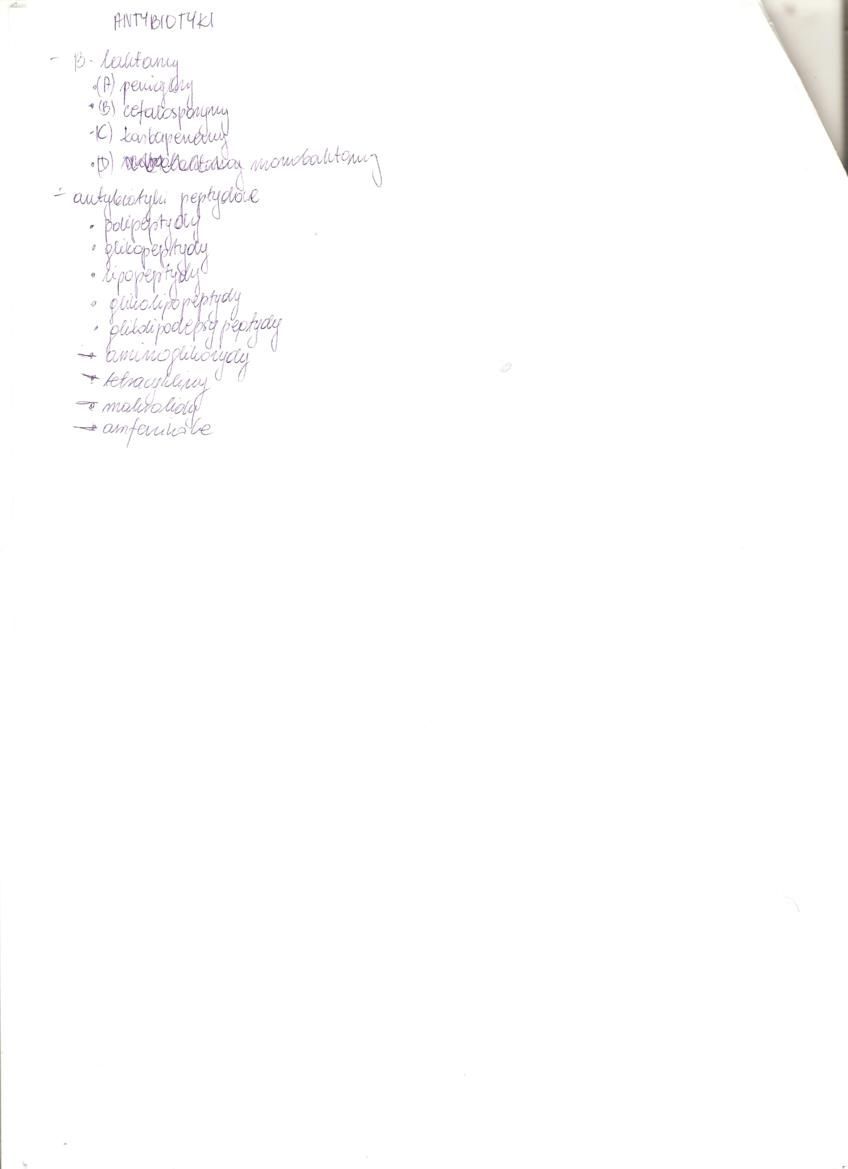 ANTYBIOTYKI
- β-laktamy
• (A) penicyliny
• (B) cefalosporyny
• (C) karbapenemy
• (D) monobaktamy
- antybiotyki peptydowe
• polipeptydy
• glikopeptydy
• lipopeptydy
• glikolipopeptydy
• glikolipodepsypeptydy
→ aminoglikozydy
→ tetracykliny
→ makrolidy
→ amfenikole